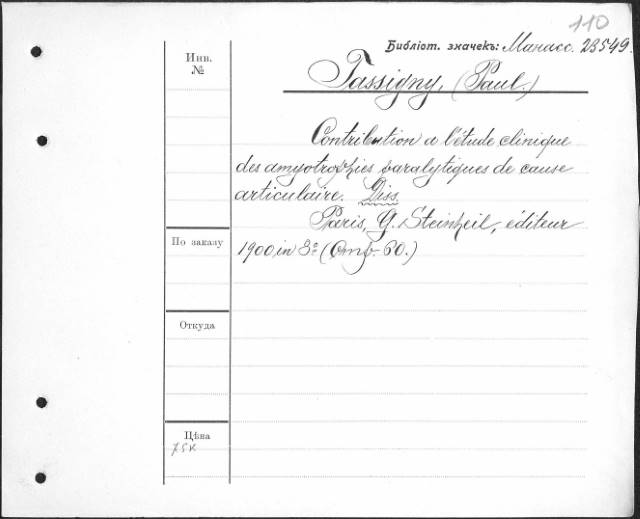 110
Библіот. значекъ: Манасс. 23549.
Инв.
№
Tassigny, (Paul.)
Contribution a l'étude clinique
des amyotrophies paralytiques de cause
articulaire. Diss.
Paris, G. Steinheil, éditeur
По заказу
1900, in 8º (Стр. 60.)
Откуда
Цѣна
75к